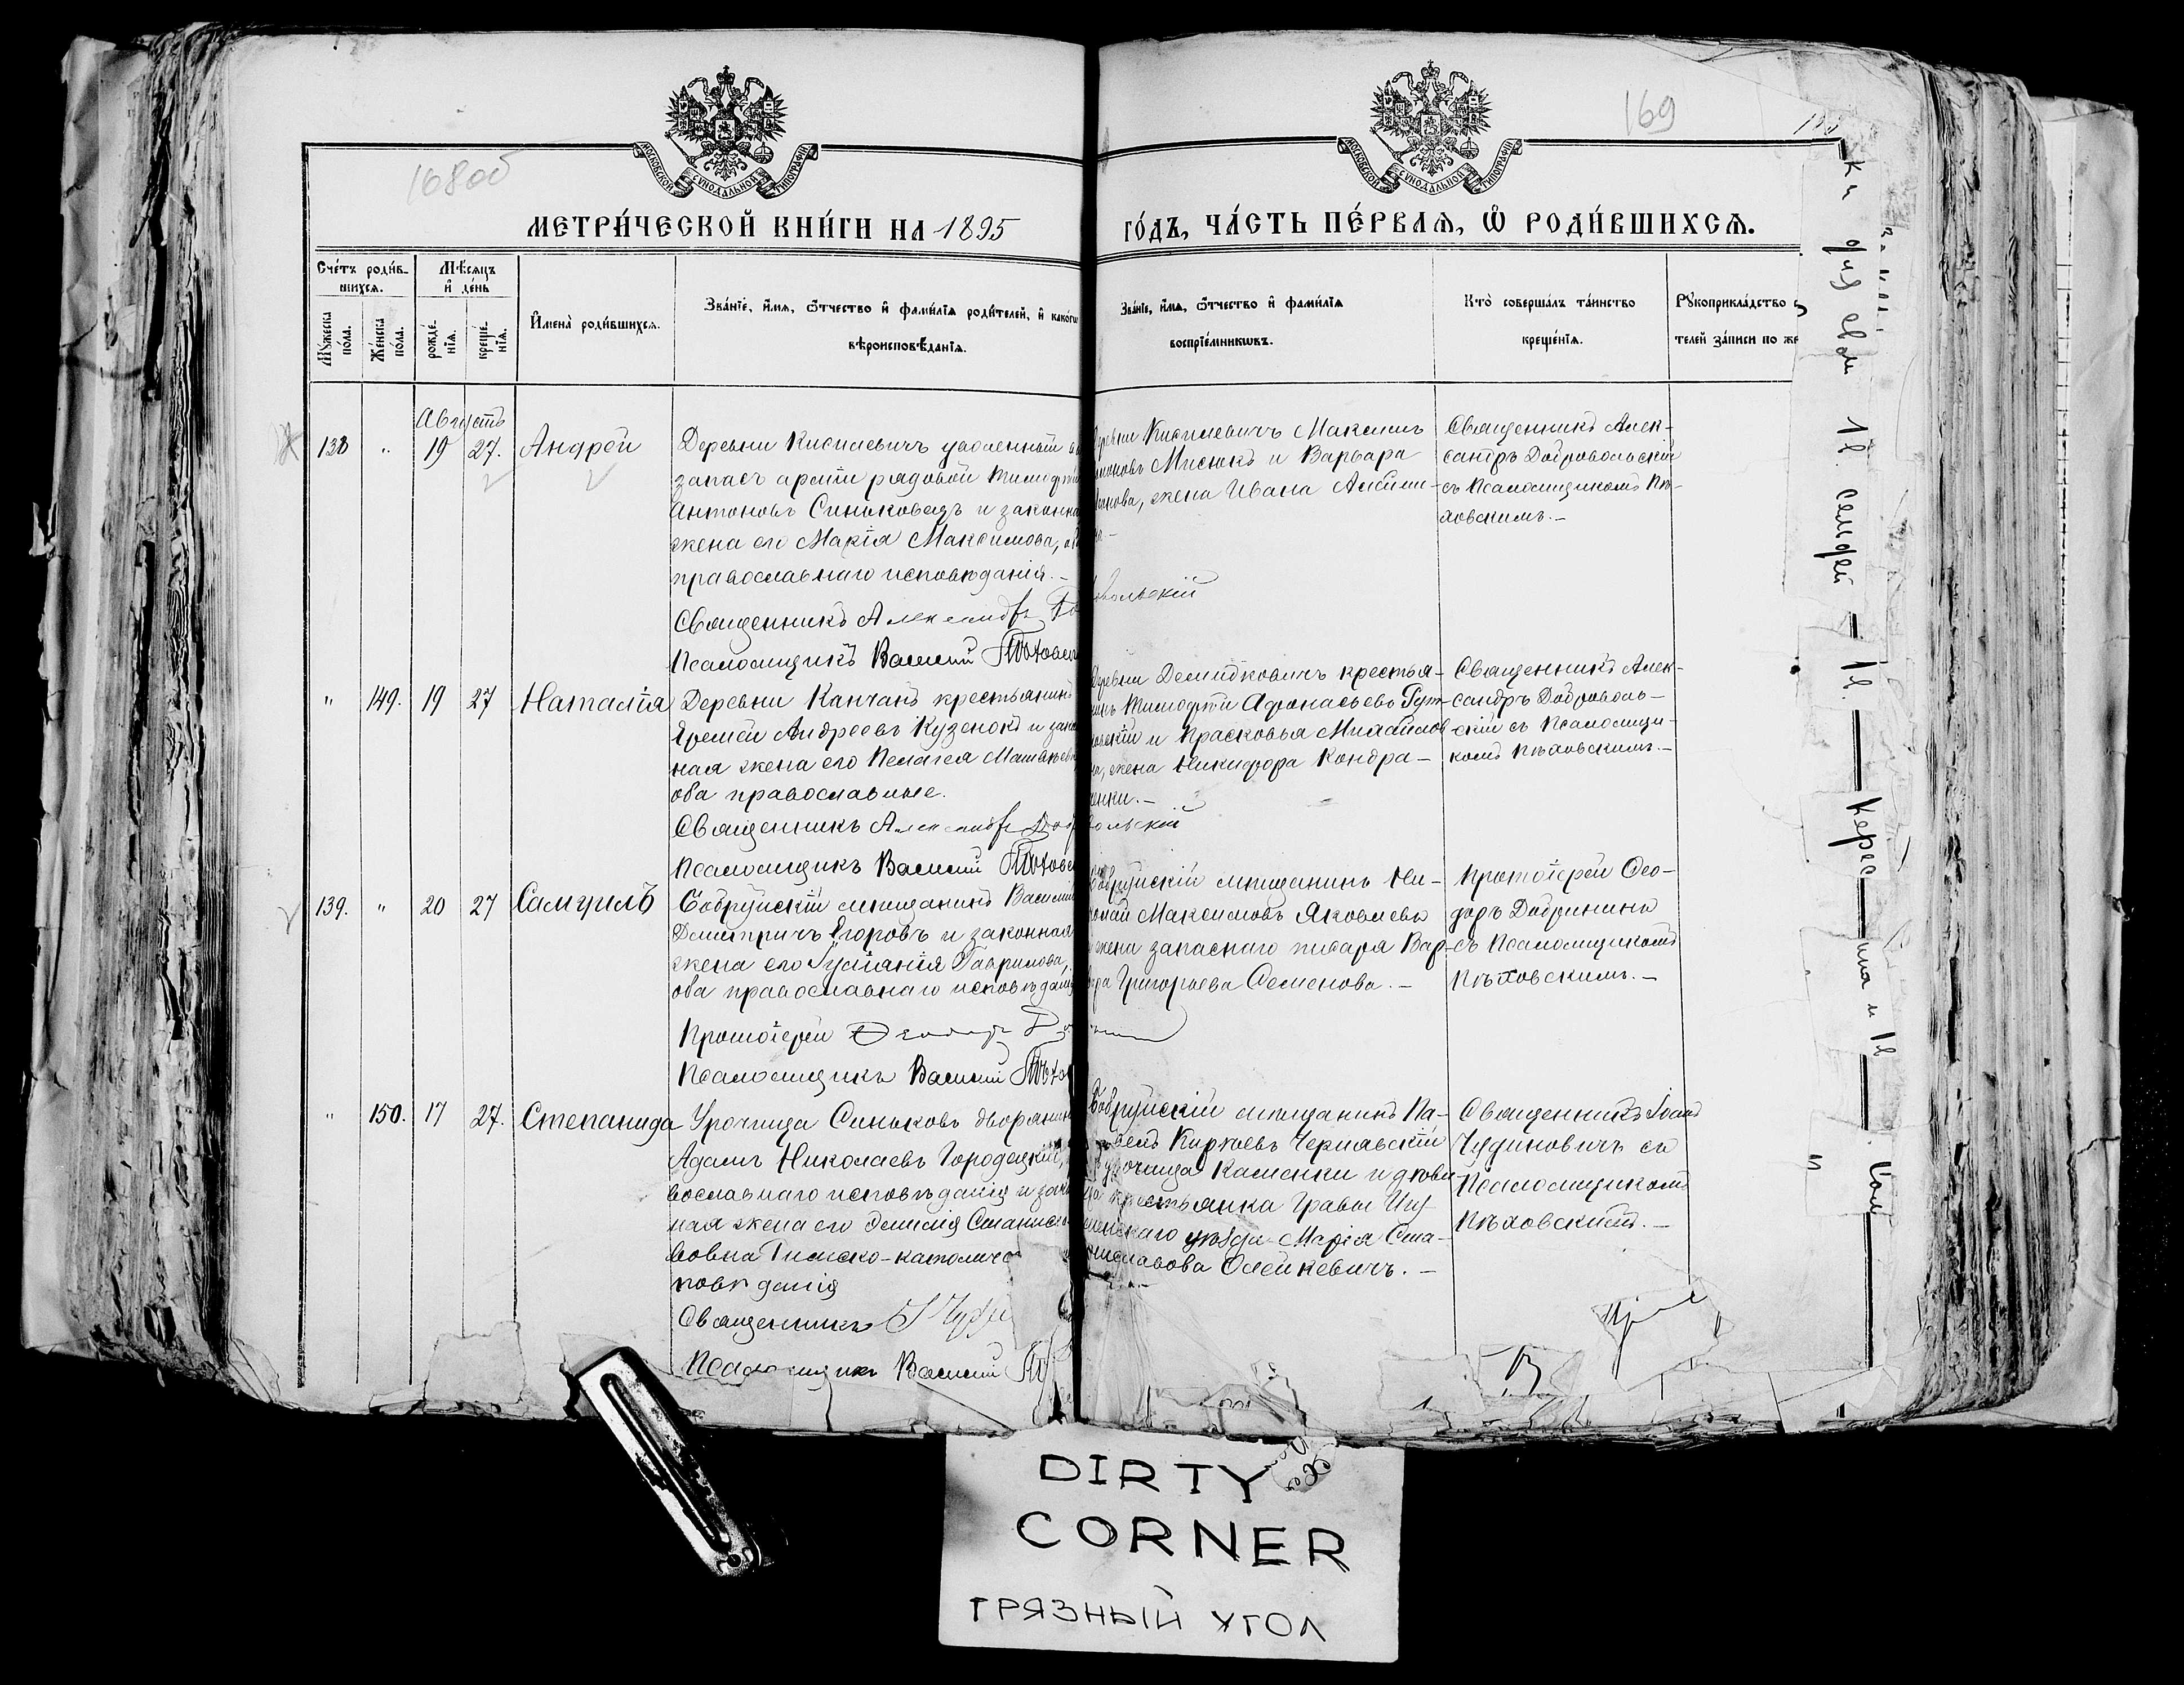 168об
169
МОСКОВСКОЙ СѴНОДАЛЬНОЙ ТИПОГРАФІИ
МОСКОВСКОЙ СѴНОДАЛЬНОЙ ТИПОГРАФІИ
МЕТРИ́ЧЕСКОЙ КНИ́ГИ НА 1895
ГО́ДЪ, ЧА́СТЬ ПЕ́РВАЯ, Ѡ РОДИ́ВШИХСЯ.
Сче́тъ роди́в-
шихся.
Мѣ́сяцъ
и҆ де́нь
Му́жеска по́ла.
Же́нска по́ла.
рожде́-
нїя.
креще́-
нїя.
И҆мена̀ роди́вшихся.
Зва́нїе, и҆́мя, ѻ҆́тчество и҆ фами́лїя роди́телей, и҆ како́гѡ
вѣроисповѣ́данїя.
Зва́нїе, и҆́мя, ѻ҆́тчество и҆ фами́лїя
воспрїе́мникѡвъ.
Кто̀ соверша́лъ та́инство
креще́нїя.
Рукоприкла́дство
телей за́писи по же
Августъ
138 " 19 27. Андрей
Деревни Кисилевичъ уволенный въ
запасъ арміи рядовой Тимофей
Антоновъ Синьковецъ и законная
жена его Марія Максимова, оба
православнаго исповѣданія.-
Священникъ Александръ Добровольскій
Псаломщикъ Василій Пѣховскій
Деревни Кисилевичъ Максимъ
Мисюкъ и Варвара
жена Ивана
Священникъ Алек-
сандръ Добровольскій
съ Псаломщикомъ Пѣ-
ховскимъ.-
" 149. 19 27 Наталія
Деревни Канчанъ крестьянинъ
Еремѣй Андреевъ Кузенокъ и закон
ная жена его Пелагея Матвѣева
оба православные.
Священникъ Александръ Добровольскій
Псаломщикъ Василій Пѣховскій
Деревни Демидковичъ крестья-
нинъ Тимофей Афонасьевъ Гут-
ковскій и Прасковья Михайлов
на, жена Никифора Кондра-
Священникъ Алек-
сандръ Доброволь-
скій съ Псаломщи-
комъ Пѣховскимъ.-
139. " 20 27 Самуилъ
Бобруйскій мѣщанинъ Василій
Дмитричъ Егоровъ и законная
жена его Іуліанія Гаврилова,
оба православнаго исповѣданія
Протоіерей Ѳеодоръ
Псаломщикъ Василій Пѣховскій
Бобруйскій мѣщанинъ Ни-
колай Максимовъ Яковлевъ
и жена запаснаго писаря Вар-
вара Григорьева Семенова.-
Протоіерей Ѳео-
доръ Добрининъ
съ Псаломщикомъ
Пѣховскимъ.-
" 150. 17 27. Степанида
Урочища Синьковъ дворянинъ
Адамъ Николаевъ Городецкій, пра
вославнаго исповѣданія и закон
ная жена его Эмилія Станисла
вовна Римско-католичес
повѣданія
Священникъ І Чуди
Псаломщикъ Василій
Бобруйскій мѣщанинъ Па-
велъ Карповъ Чернавскій
урочища Каменки и дѣви-
ца крестьянка Гравы Игу
менскаго уѣзда Марія Ста-
ниславова Олейкевичъ.-
Священникъ Іоаннъ
Чудиновичъ съ
Псаломщикомъ
Пѣховскимъ.-
DIRTY
CORNER
ГРЯЗНЫЙ УГОЛ